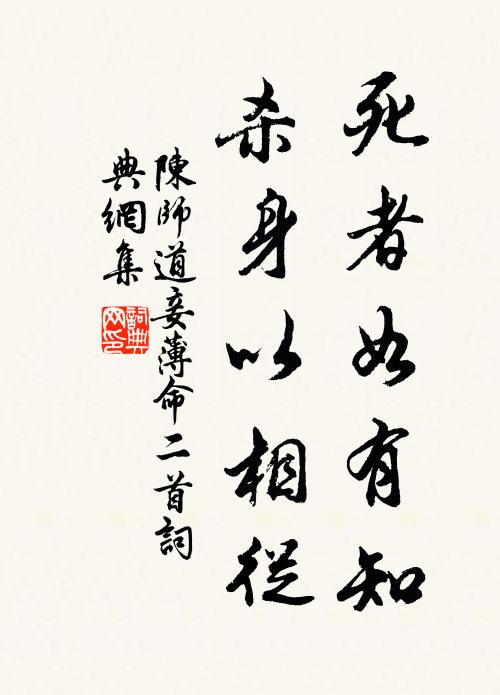 死者如有知
杀身以相從
陳師道妾薄命二首詞
典網集
詞典
网印